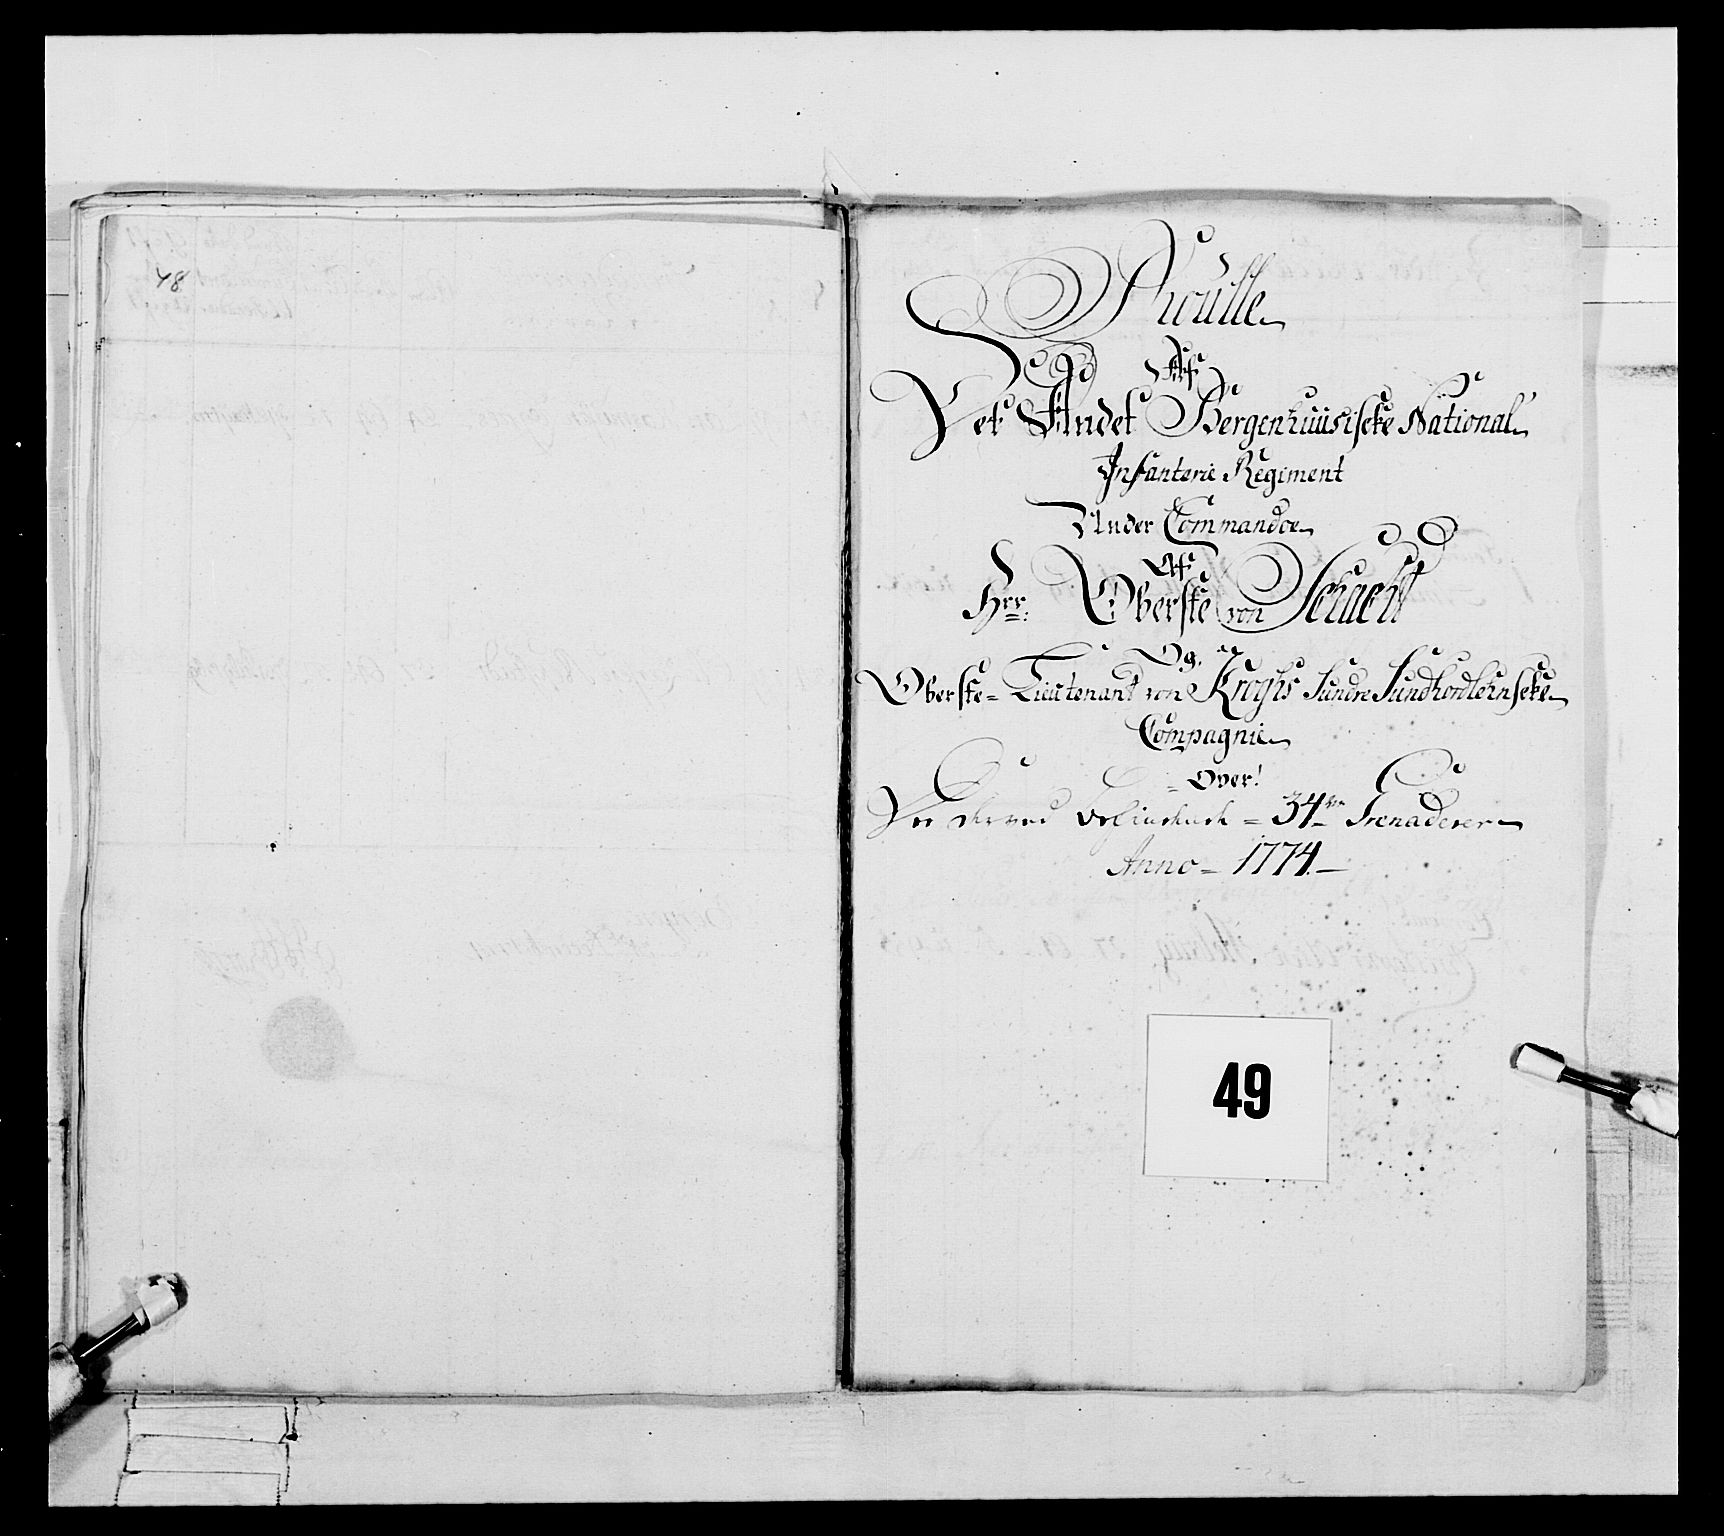 48
Rulle
Af
Det Andet Bergenhuusiske National
Infanterie Regiment
Under Commandoe
Af
Hrr: Oberste von Schacht
Og
Oberste= Lieutenant von Kroghs Sundre Sundhordlehnske
Compagnie
Over!
De derved befindende = 34re Grenaderer
Anno = 1774.
49